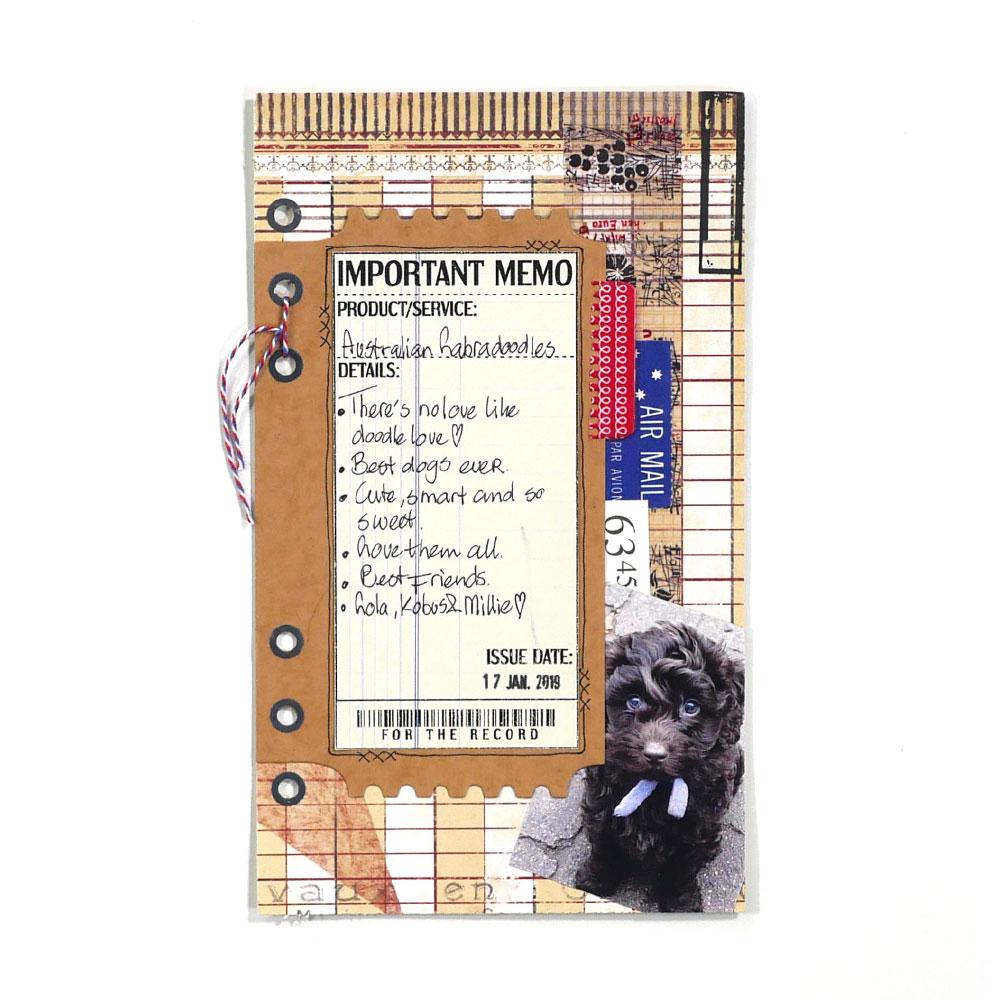 IMPORTANT MEMO
PRODUCT/SERVICE:
Australian Labradoodles
DETAILS:
• There's no love like
doodle love♡
• Best dogs ever.
• Cute, smart and so
sweet.
• Love them all.
• Best Friends.
• Lola, Kobus & Millie♡
ISSUE DATE:
17 JAN. 2019
FOR THE RECORD
AIR MAIL
PAR AVION
6345
vau en